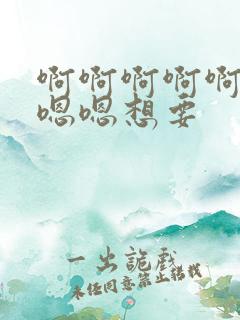 啊啊啊啊啊
嗯嗯想要
一出诡戏
未经同意禁止转载